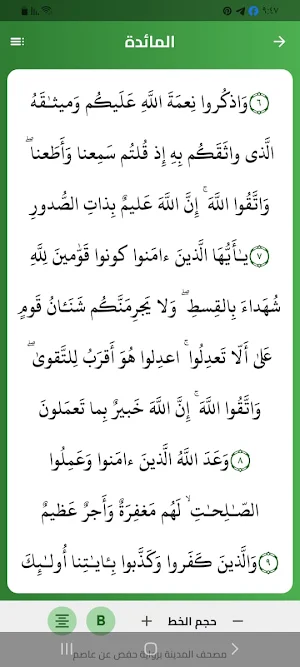 ٩:١٧
المائدة
٦ وَاذكُروا نِعمَةَ اللَّهِ عَلَيكُم وَميثـٰقَهُ
الَّذى واثَقَكُم بِهِ إِذ قُلتُم سَمِعنا وَأَطَعنا ۖ
وَاتَّقُوا اللَّهَ ۚ إِنَّ اللَّهَ عَليمٌ بِذاتِ الصُّدورِ
٧ يـٰأَيُّهَا الَّذينَ ءامَنوا كونوا قَوّٰمينَ لِلَّهِ
شُهَداءَ بِالقِسطِ ۖ وَلا يَجرِمَنَّكُم شَنَـٔانُ قَومٍ
عَلىٰ أَلّا تَعدِلُوا ۚ اعدِلوا هُوَ أَقرَبُ لِلتَّقوىٰ ۖ
وَاتَّقُوا اللَّهَ ۚ إِنَّ اللَّهَ خَبيرٌ بِما تَعمَلونَ
٨ وَعَدَ اللَّهُ الَّذينَ ءامَنوا وَعَمِلُوا
الصّـٰلِحـٰتِ ۙ لَهُم مَغفِرَةٌ وَأَجرٌ عَظيمٌ
٩ وَالَّذينَ كَفَروا وَكَذَّبوا بِـٔايـٰتِنا أُولـٰئِكَ
B + حجم الخط −
مصحف المدينة برواية حفص عن عاصم